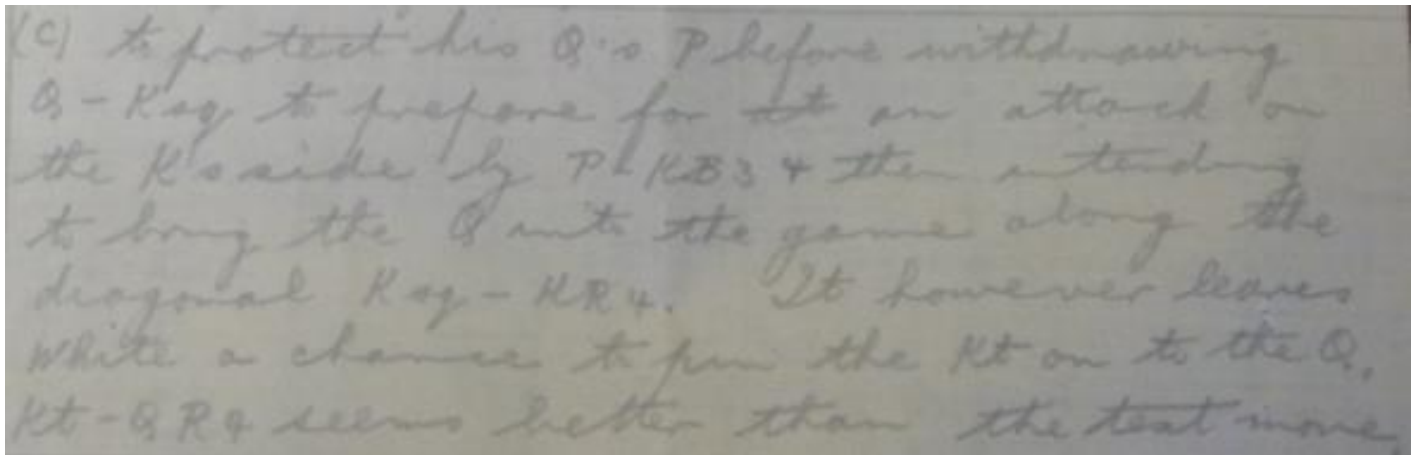 (C) to protect his Q's P before withdrawing
Q - Ksq to prepare for an attack on
the K's side by P - KB3 & then intending
to bring the Q into the game along the
diagonal Ksq - KR4. It however leaves
White a chance to pin the Kt on to the Q.
Kt - QR4 seems better than the text move